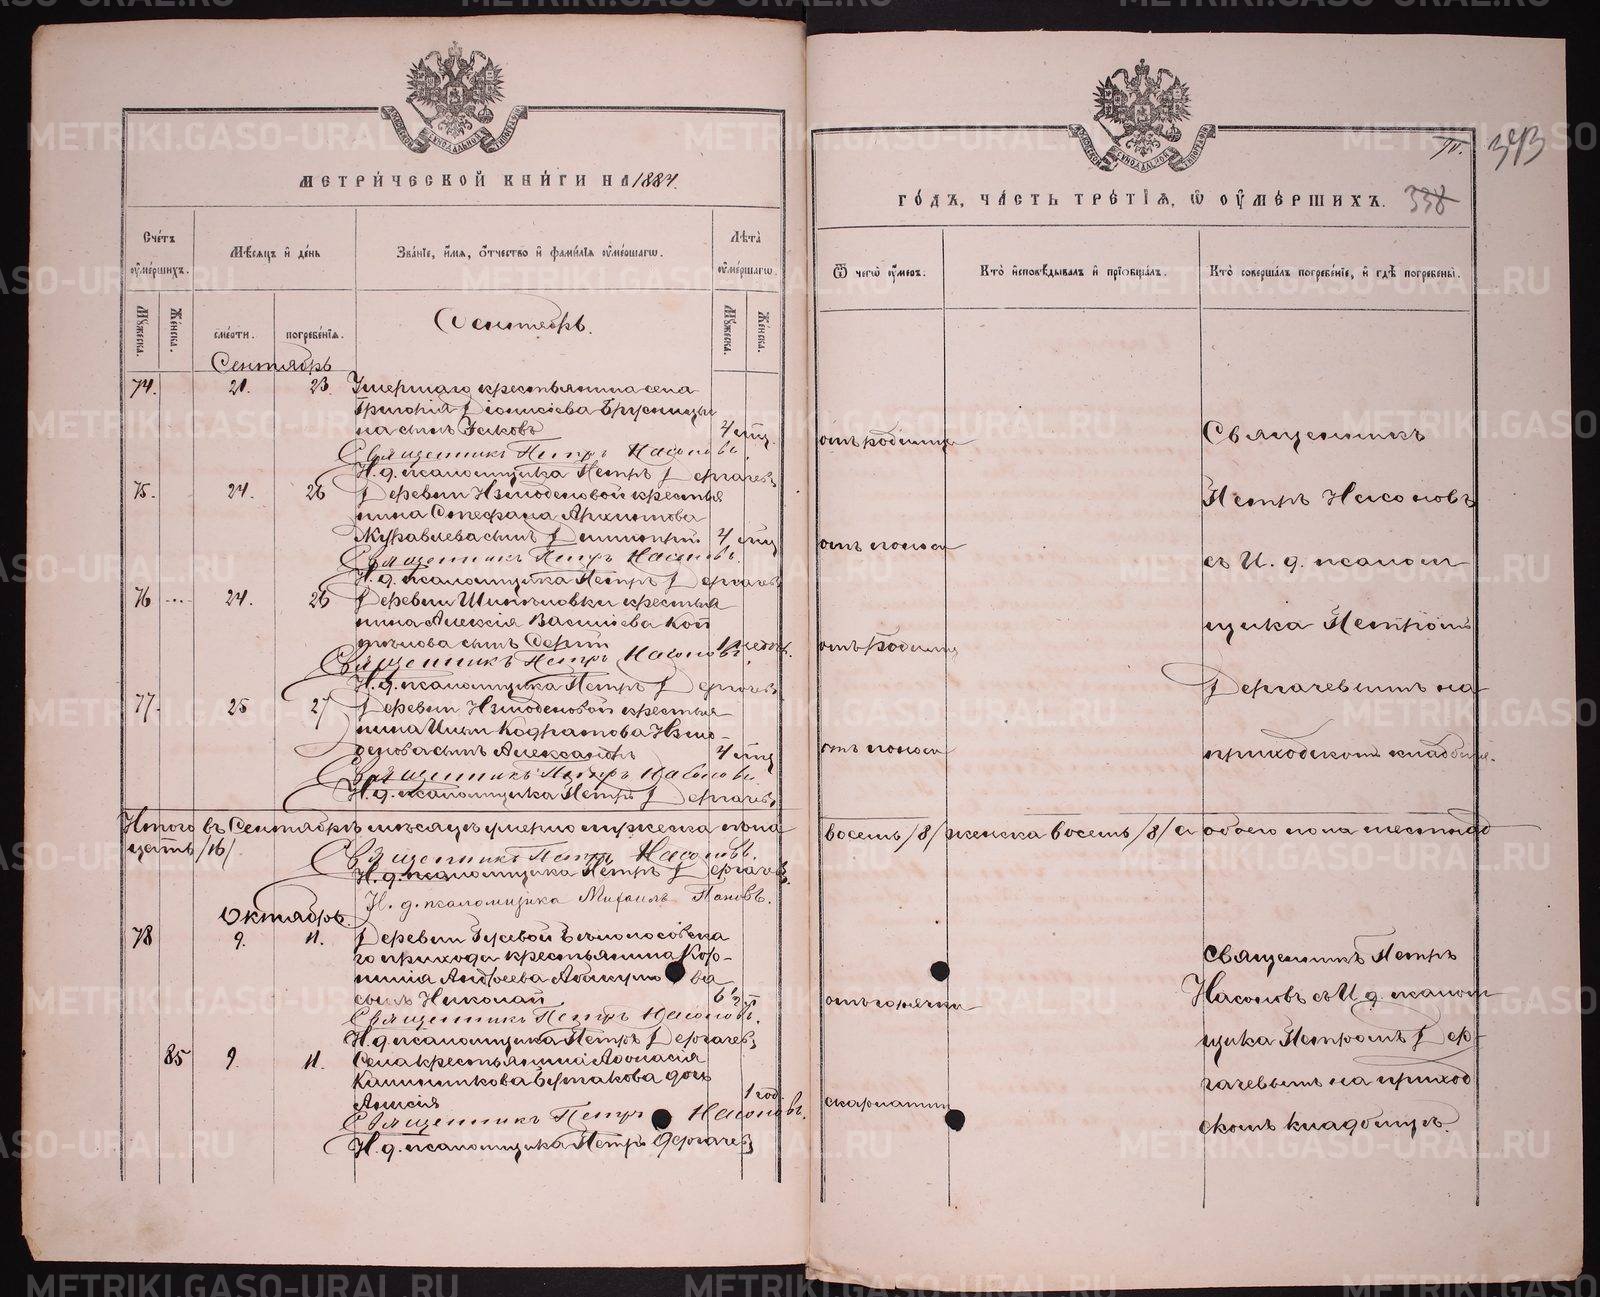 МЕТРИЧЕСКОЙ КНИГИ НА 1884.
Счетъ умершихъ.
Мѣсяцъ и день
Званіе, имя, отчество и фамилія умершагω.
Лѣта умершагω.
Мужеска.
Женска.
смерти.
погребенія.
Мужеска.
Женска.
Сентябрь.
Сентябрь
74. 21. 23. Умершаго крестьянина села
Григорія Діонисіева Брусницы
на сынъ Іаковъ 4 мѣц.
Священникъ Петръ Насоновъ.
И. д. псаломщика Петръ Дергачевъ
75. 24. 26 Деревни Измоденовой крестья
нина Стефана Архипова
Журавлева сынъ Димитрій 4 мѣц
Священникъ Петръ Насоновъ.
И. д. псаломщика Петръ Дергачевъ
76 24. 26 Деревни крестья
нина Алексія Василіева Коп
сынъ Сергій
Священникъ Петръ Насоновъ.
И. д. псаломщика Петръ Дергачевъ
77. 25 27 Деревни Измоденовой крестья
нина Иліи Кодратова Измо-
денова сынъ Александръ 4 мѣц
Священникъ Петръ Насоновъ
И. д. псаломщика Петръ Дергачевъ
Итого въ Сентябрѣ мѣсяцѣ умерло мужеска пола
цать /16/
Священникъ Петръ Насоновъ.
И. д. псаломщика Петръ Дергачевъ.
И. д. псаломщика Михаилъ Пановъ.
Октябрь
78 9. 11. Деревни Гуевой Бѣлоносовска
го прихода крестьянина Кор-
нилія Андреева Абакумова
сынъ Николай 6½
Священникъ Петръ Насоновъ.
И. д. псаломщика Петръ Дергачевъ
85 9. 11. Села крестьянина Афонасія
Калинникова Бурмакова дочь
Анисія 1 год.
Священникъ Петръ Насоновъ.
И. д. псаломщика Петръ Дергачевъ
343
ГОДЪ, ЧАСТЬ ТРЕТІЯ, Ѡ УМЕРШИХЪ. 338
Ѿ чегω умеръ.
Кто исповѣдывалъ и пріобщалъ.
Кто совершалъ погребеніе, и гдѣ погребены.
отъ родимца
отъ поноса
отъ родимца
отъ поноса
Священникъ
Петръ Насоновъ
съ И. д. псалом
щика Петромъ
Дергачевымъ на
приходскомъ кладбищѣ.
восемь /8/ женска восемь /8/ а обоего пола шестнад
отъ горячки
скарлатины
Священникъ Петръ
Насоновъ съ И. д. псалом
щика Петромъ Дер-
гачевымъ на приход
скомъ кладбищѣ.